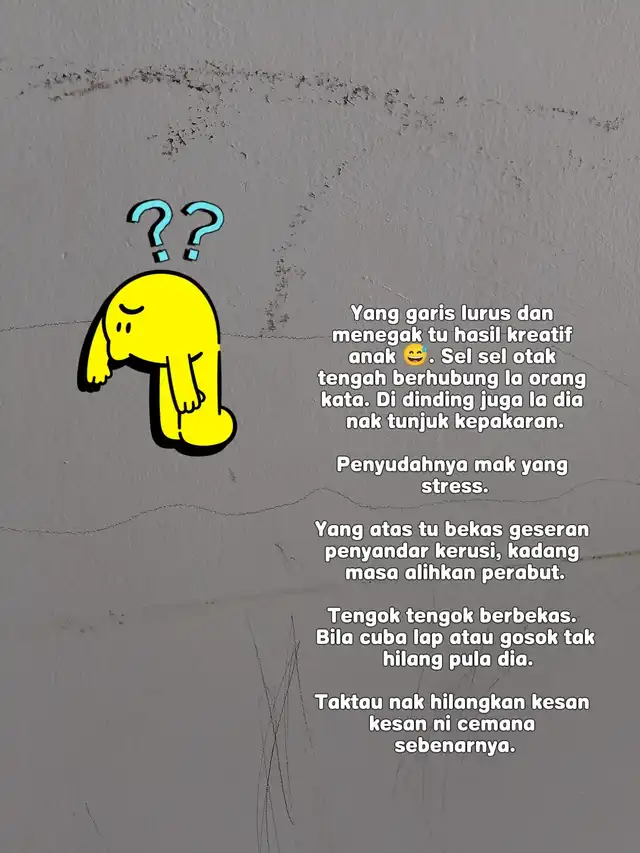 ??
Yang garis lurus dan
menegak tu hasil kreatif
anak 😅. Sel sel otak
tengah berhubung la orang
kata. Di dinding juga la dia
nak tunjuk kepakaran.
Penyudahnya mak yang
stress.
Yang atas tu bekas geseran
penyandar kerusi, kadang
masa alihkan perabut.
Tengok tengok berbekas.
Bila cuba lap atau gosok tak
hilang pula dia.
Taktau nak hilangkan kesan
kesan ni cemana
sebenarnya.